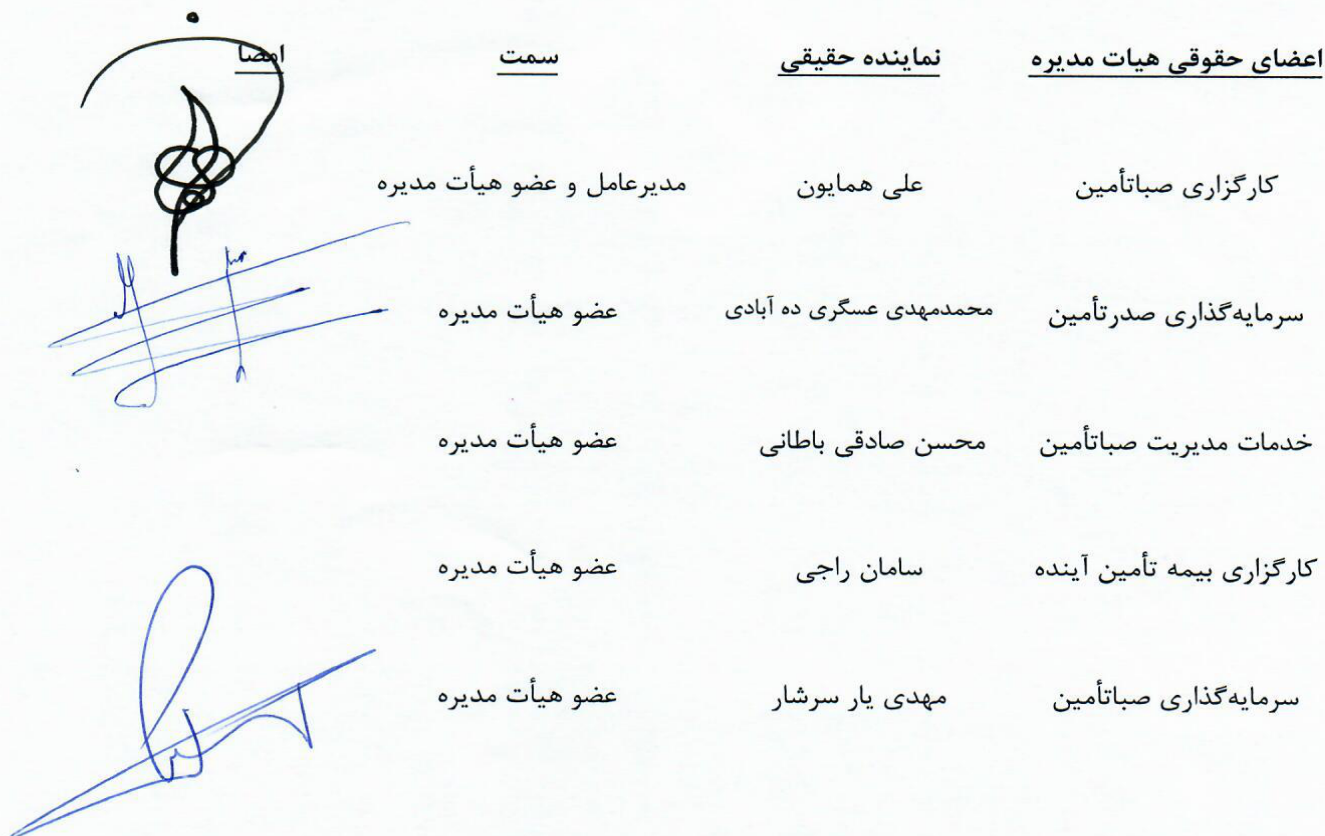 اعضای حقوقی هیات مدیره نماینده حقیقی سمت امضا
کارگزاری صباتأمین علی همایون مدیرعامل و عضو هیأت مدیره
سرمایه‌گذاری صدرتأمین محمدمهدی عسگری ده آبادی عضو هیأت مدیره
خدمات مدیریت صباتأمین محسن صادقی باطانی عضو هیأت مدیره
کارگزاری بیمه تأمین آینده سامان راجی عضو هیأت مدیره
سرمایه‌گذاری صباتأمین مهدی یار سرشار عضو هیأت مدیره